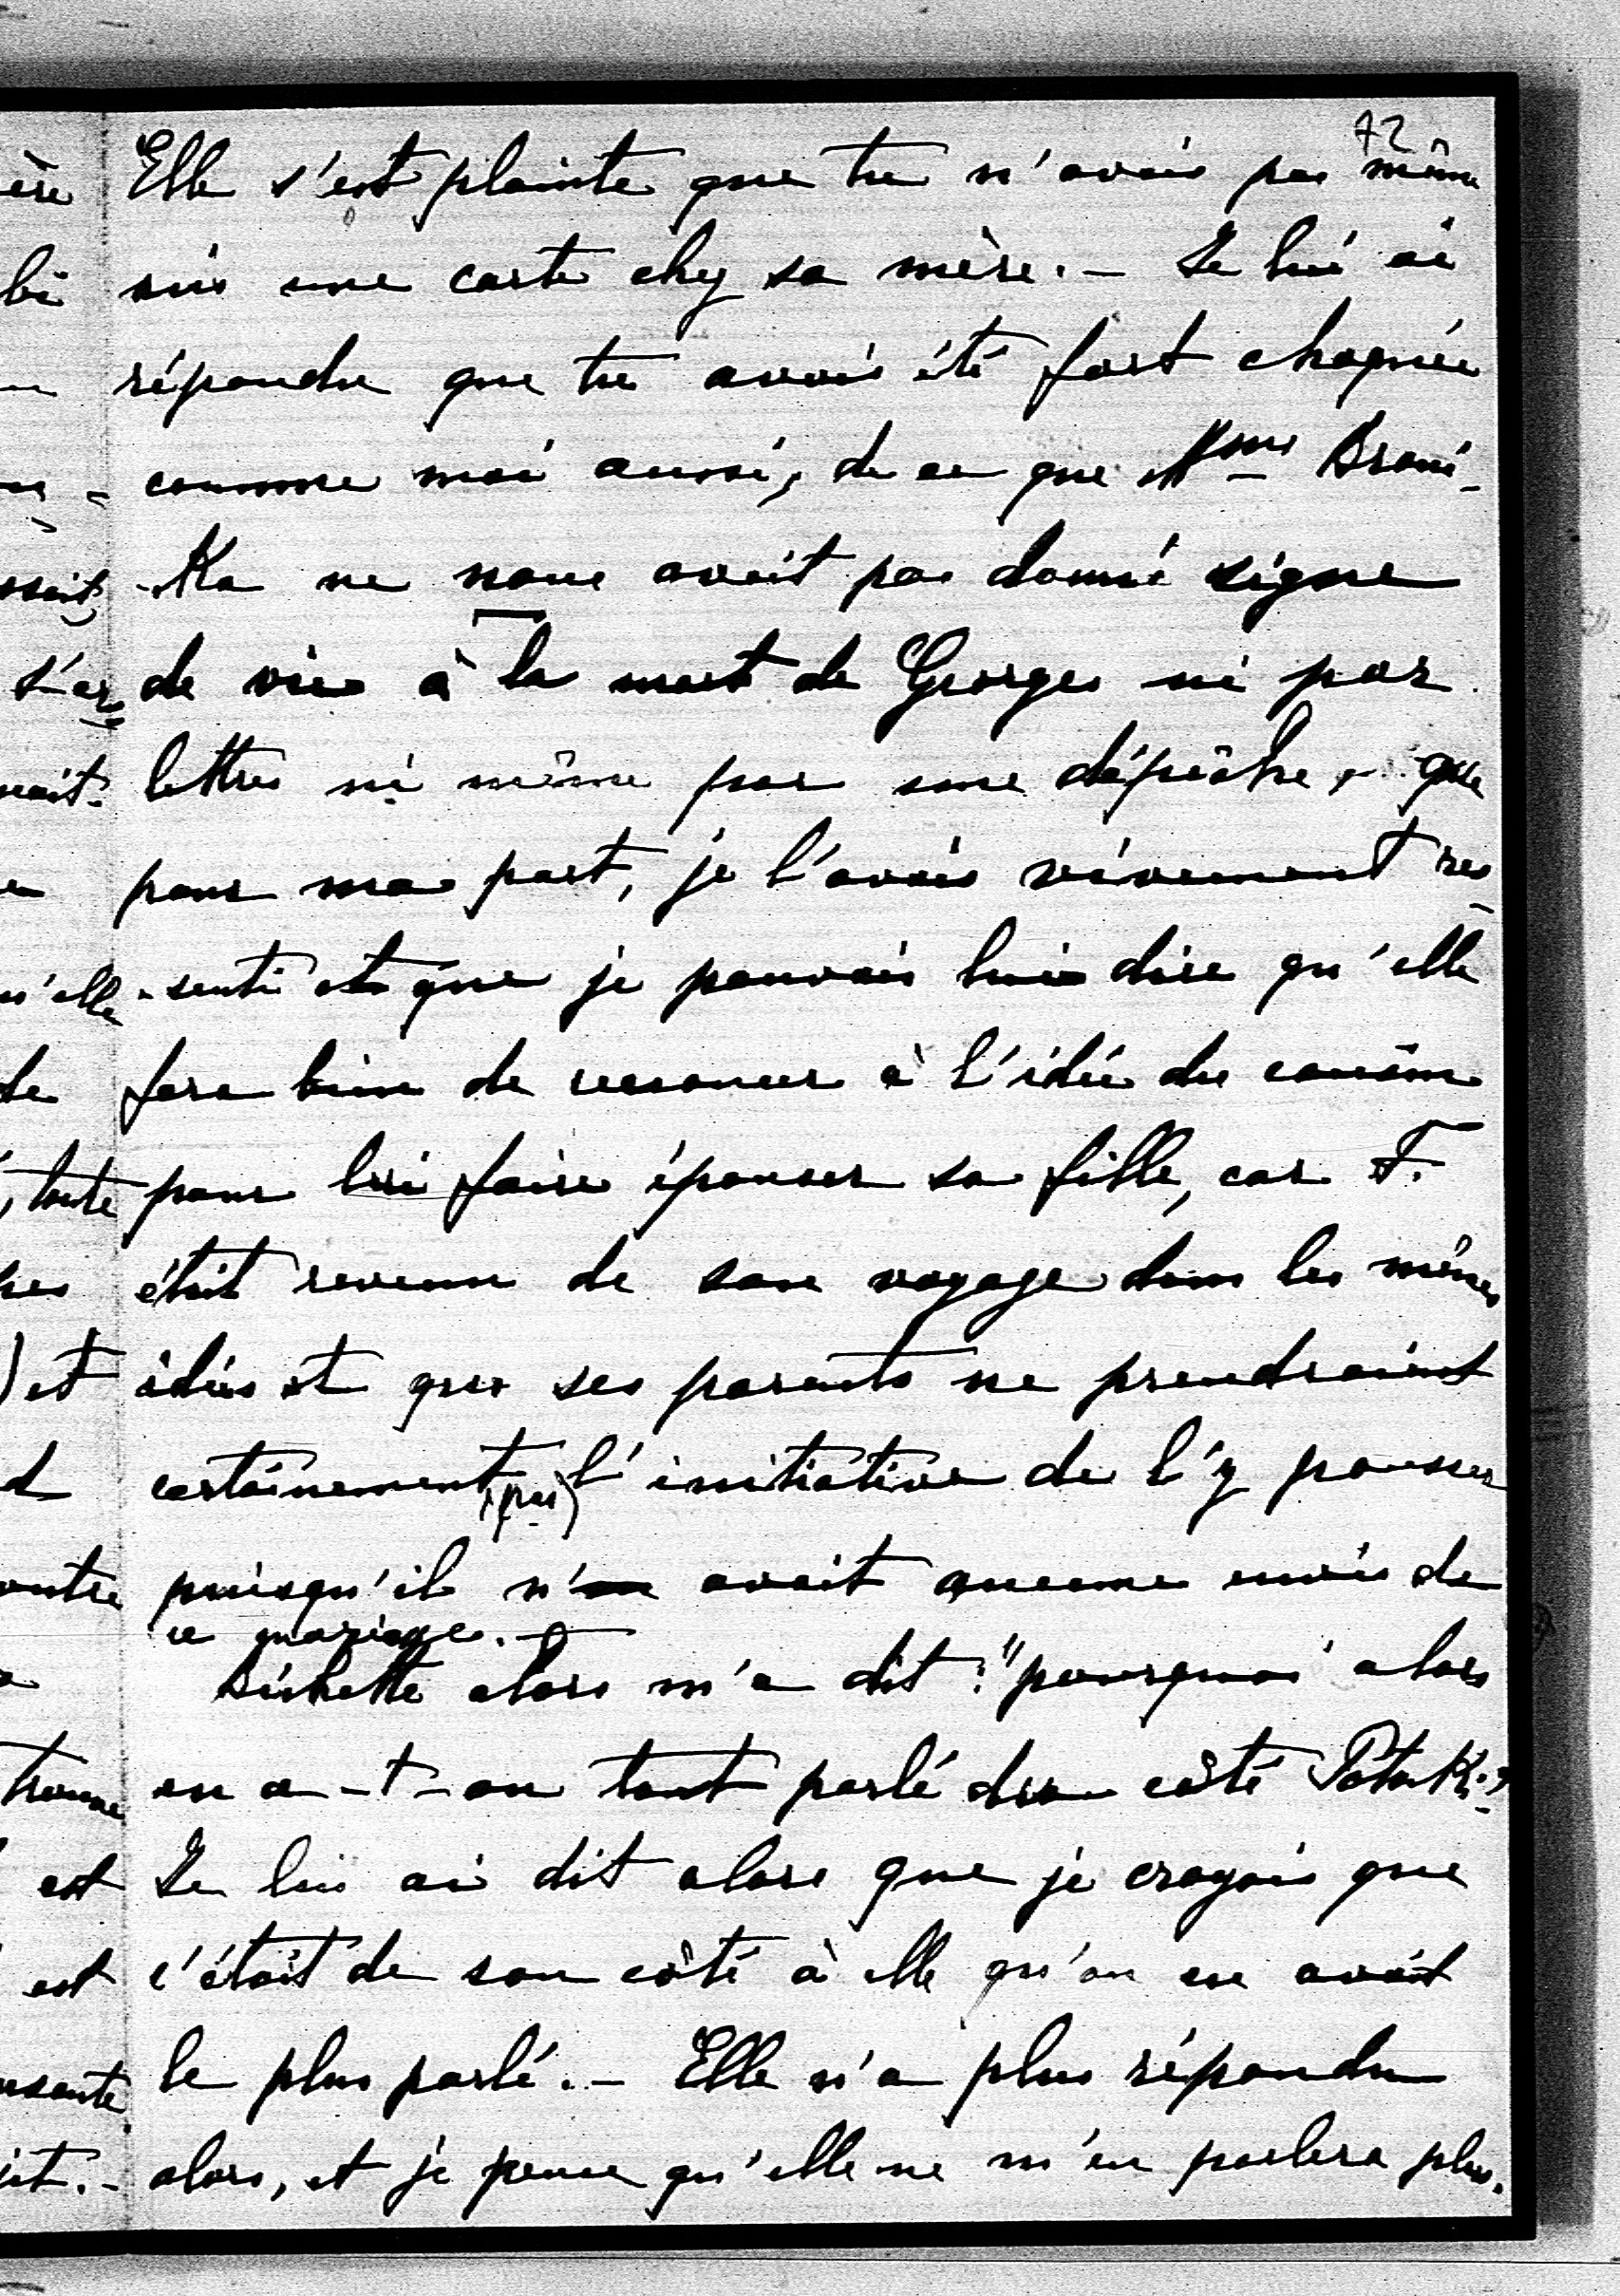 72
Elle s'est plainte que tu n'avais pas même
mis une carte chez sa mère. – Je lui ai
répondu que tu avais été fort chagrinée
comme moi aussi, de ce que Mme Broni-
-Ka ne nous avait pas donné signe
de vie à la mort de Georges ni par
lettres ni même par une dépêche, que
pour ma part, je l'avais vivement res-
-senti et que je pouvais lui dire qu'elle
fera bien de renoncer à l'idée du cousin
pour lui faire épouser sa fille, car F.
était revenu de son voyage dans les mêmes
idées et que ses parents ne prendraient
certainement (pas) l'initiative de l'y pousser
puisqu'il n' avait aucune envie de
ce mariage. –
Bichette alors m'a dit : "pourquoi alors
en a-t-on tant parlé du côté Potoki ?
Je lui ai dit alors que je croyais que
c'était de son côté à elle qu'on en avait
le plus parlé. – Elle n'a plus répondu
alors, et je pense qu'elle ne m'en parlera plus.